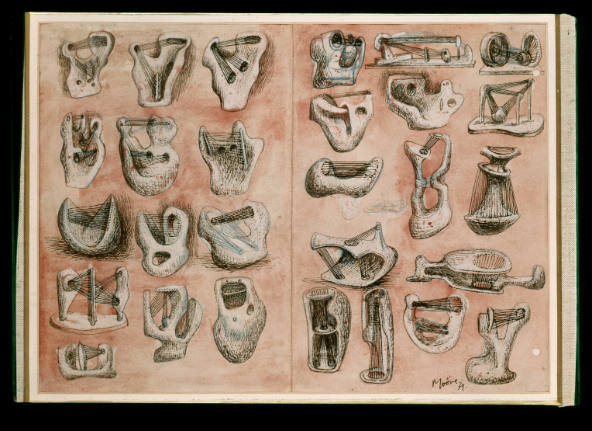 Moore
39